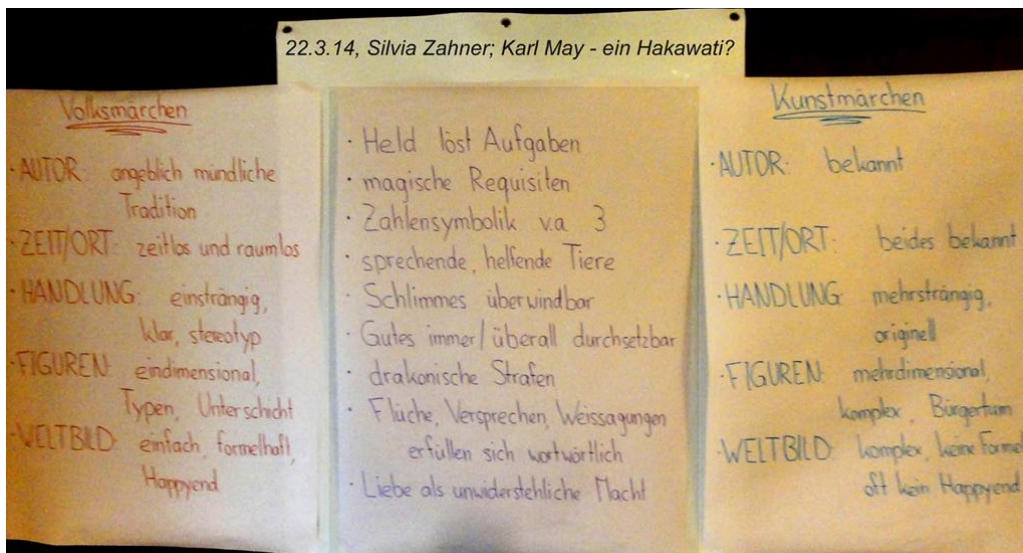 22.3.14, Silvia Zahner; Karl May - ein Hakawati?
Volksmärchen
· AUTOR: angeblich mündliche
Tradition
· ZEIT/ORT: zeitlos und raumlos
· HANDLUNG: einsträngig,
klar, stereotyp
· FIGUREN: eindimensional,
Typen, Unterschicht
· WELTBILD: einfach, formelhaft,
Happyend
· Held löst Aufgaben
· magische Requisiten
· Zahlensymbolik v.a 3
· sprechende, helfende Tiere
· Schlimmes überwindbar
· Gutes immer/überall durchsetzbar
· drakonische Strafen
· Flüche, Versprechen, Weissagungen
erfüllen sich wortwörtlich
· Liebe als unwiderstehliche Macht
Kunstmärchen
· AUTOR: bekannt
· ZEIT/ORT: beides bekannt
· HANDLUNG: mehrsträngig,
originell
· FIGUREN: mehrdimensional,
komplex, Bürgertum
· WELTBILD: komplex, keine Formel
oft kein Happyend